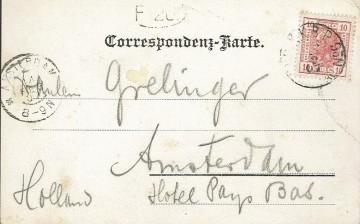 F 20
Correspondenz-Karte.
10 10
AMSTERDAM
8-9N
Grelinger
Amsterdam
Holland Hotel Pays Bas.